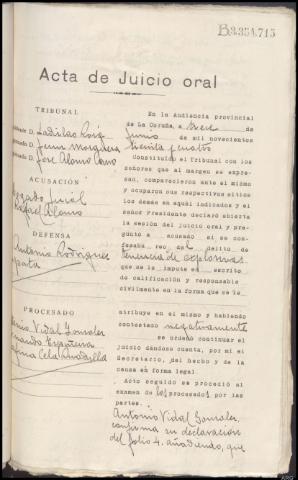 B.3.354.715
Acta de Juicio oral
TRIBUNAL
D. Ladislao Roig
D. Juan Morquera
D. José Alonso Cano
ACUSACIÓN
Abogado Fiscal
Rafael Alonso
DEFENSA
Antonio Rodríguez
PROCESADO
Antonio Vidal Gonzalez
Cela
En la Audiencia provincial
de La Coruña, a trece de
Junio de mil novecientos
treinta y cuatro
Constituido el Tribunal con los
señores que al margen se expre-
san, comparecieron ante el mismo
y ocuparon sus respectivos sitios
los demás en aquél indicados y el
señor Presidente declaró abierta
la sesión del juicio oral y pre-
guntó a acusado si se con-
fesaba reo del delito de
tenencia de explosivos
que se le imputa en escrito
de calificación y responsable
civilmente en la forma que se le
atribuye en el mismo y habiendo
contestado negativamente
se ordenó continuar el
juicio dándose cuenta, por mí el
Secretario, del hecho y de la
causa en forma legal.
Acto seguido se procedió al
examen de los procesados por las
partes.
Antonio Vidal Gonzalez
confirma su declaración
del folio 4. añadiendo, que
ARG